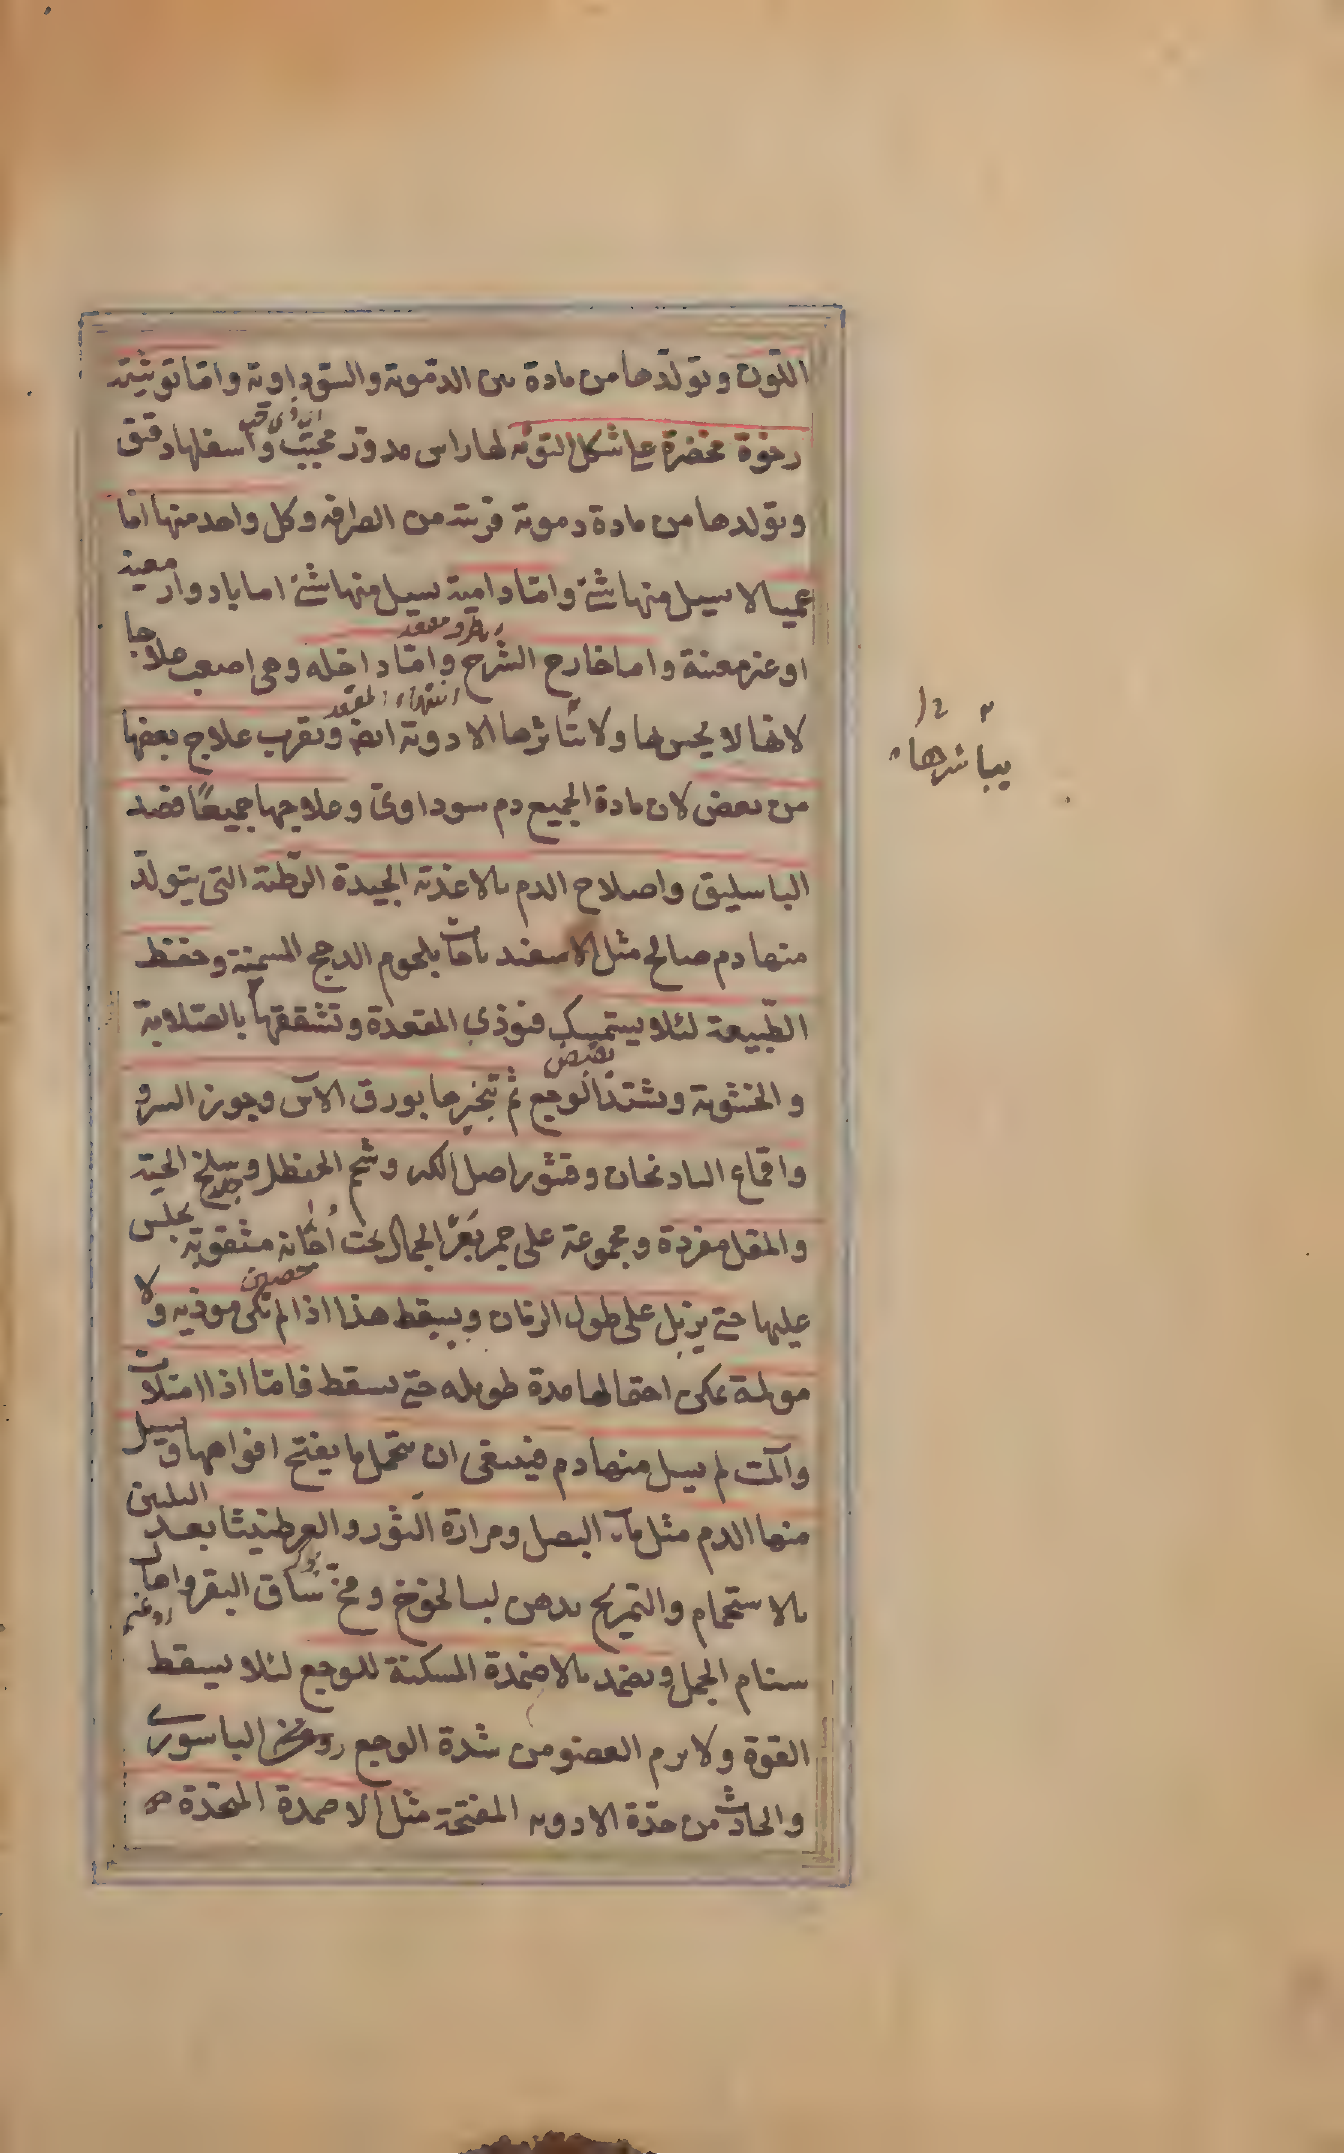 اللون وتولدها من مادة بين الدموية والسوداوية واما توثية
رخوة مخضرة على شكل التوثة لها راس مدور محبب واسفلها دقيق
وتولدها من مادة دموية قريبة من الصرافة وكل واحد منها اما
عمياء لا يسيل منها شئ واما دامية يسيل منها شئ اما بادوار معينة
او غير معينة واما خارج الشرج واما داخله وهي اصعب علاجا
لانها لا يحس بها ولا تباشرها الادوية ايضا ويقرب علاج بعضها
يباشرها
من بعض لان مادة الجميع دم سوداوى وعلاجها جميعا فصد
الباسليق واصلاح الدم بالاغذية الجيدة الرطبة التى يتولد
منها دم صالح مثل الاسفيدباجات بلحوم الدجج السمينة وحفظ
الطبيعة لئلا يستمسك فتوذى المقعدة وتشققها بالصلابة
والخشونة ويشتد الوجع ثم تبخيرها بورق الآس وجوز السرو
واقماع الباذنجان وقشور اصل الكبر وشحم الحنظل وسلخ الحية
والمقل مفردة ومجموعة على جمر بعر الجمال تحت اجانة مثقوبة يجلس
عليها حتى يذبل على طول الزمان ويسقط هذا اذا لم تكن موذيه ولا
مولمة يمكن احتمالها مدة طويله حتى يسقط فاما اذا امتلات
وآلمت لم يسيل منها دم فينبغى ان يتحمل ما يفتح افواهها ويسيل
منها الدم مثل ماء البصل ومرارة الثور والعرطنيثا بعد التليين
بالاستحمام والتمريخ بدهن لب الخوخ ومخ ساق البقر واهال
سنام الجمل ويضمد بالاضمدة المسكنة للوجع لئلا يسقط
القوة ولا يرم العضو من شدة الوجع الباسورى
والحادث من حدة الادويه المفتحة مثل الاضمدة المتخذة